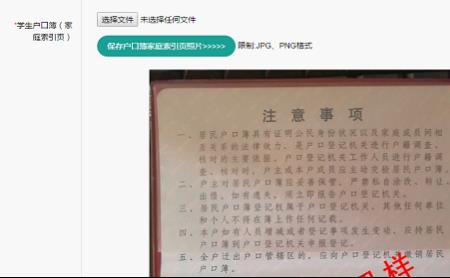 *学生户口簿（家
庭索引页）
选择文件 未选择任何文件
保存户口簿家庭索引页照片>>>>> 限制:JPG、PNG格式
注意事项
一、居民户口簿具有证明公民身份状况以及家庭成员间相
及关系的法律效力，是户口登记机关进行户籍调查、
核对的主要依据。户口登记机关工作人员进行户籍调查、
核对时，户主或本户成员应主动交验居民户口簿。
二、户主对居民户口簿应妥善保管，严禁私自涂改、转让、
出借。如有遗失，须立即报告户口登记机关。
三、居民户口簿登记权属于户口登记机关，其他任何单位
和个人不得在簿上作任何记载。
四、本户如有人员增减或者登记事项发生变动，应持居民
户口簿到户口登记机关申报登记。
五、全户迁出户口管辖区的，应向户口登记机关缴销居民
户口簿。
样